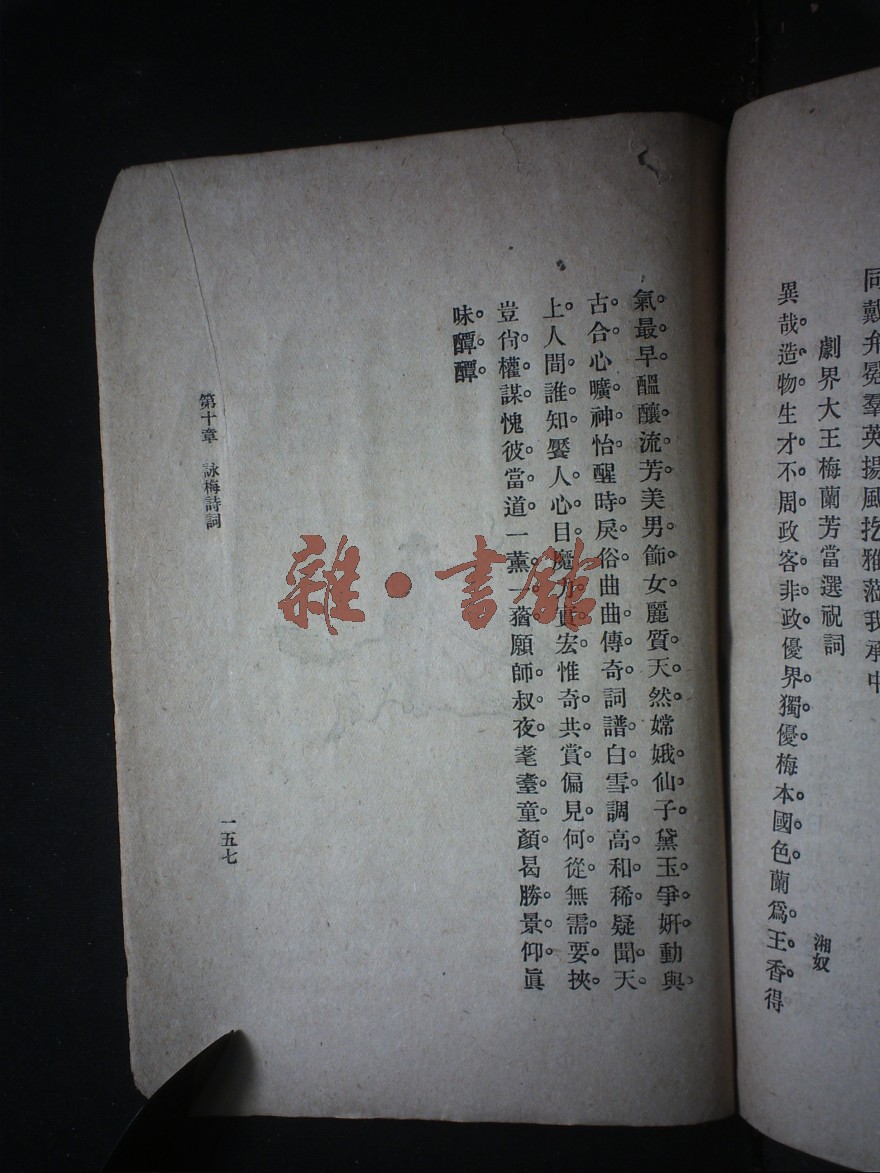 同戴弁冕羣英揚風扢雅蒞我承中
劇界大王梅蘭芳當選祝詞
湘奴
異哉。造物生才不周。政客非政。優界獨優。梅本國色。蘭爲王香。得
氣最早。醞釀流芳。美男飾女。麗質天然。嫦娥仙子。黛玉爭妍。動與
古合。心曠神怡。醒時戾俗。曲曲傳奇。詞譜白雪。調高和稀。疑聞天
上。人間誰知。娶人心目。魔力寶宏。惟奇共賞。偏見何從。無需要挾。
豈尙權謀。愧彼當道。一薰一蕕。願師叔夜。耄耋童顏。曷勝景仰。眞
味醰醰。
第十章 詠梅詩詞
一五七
雜·書館